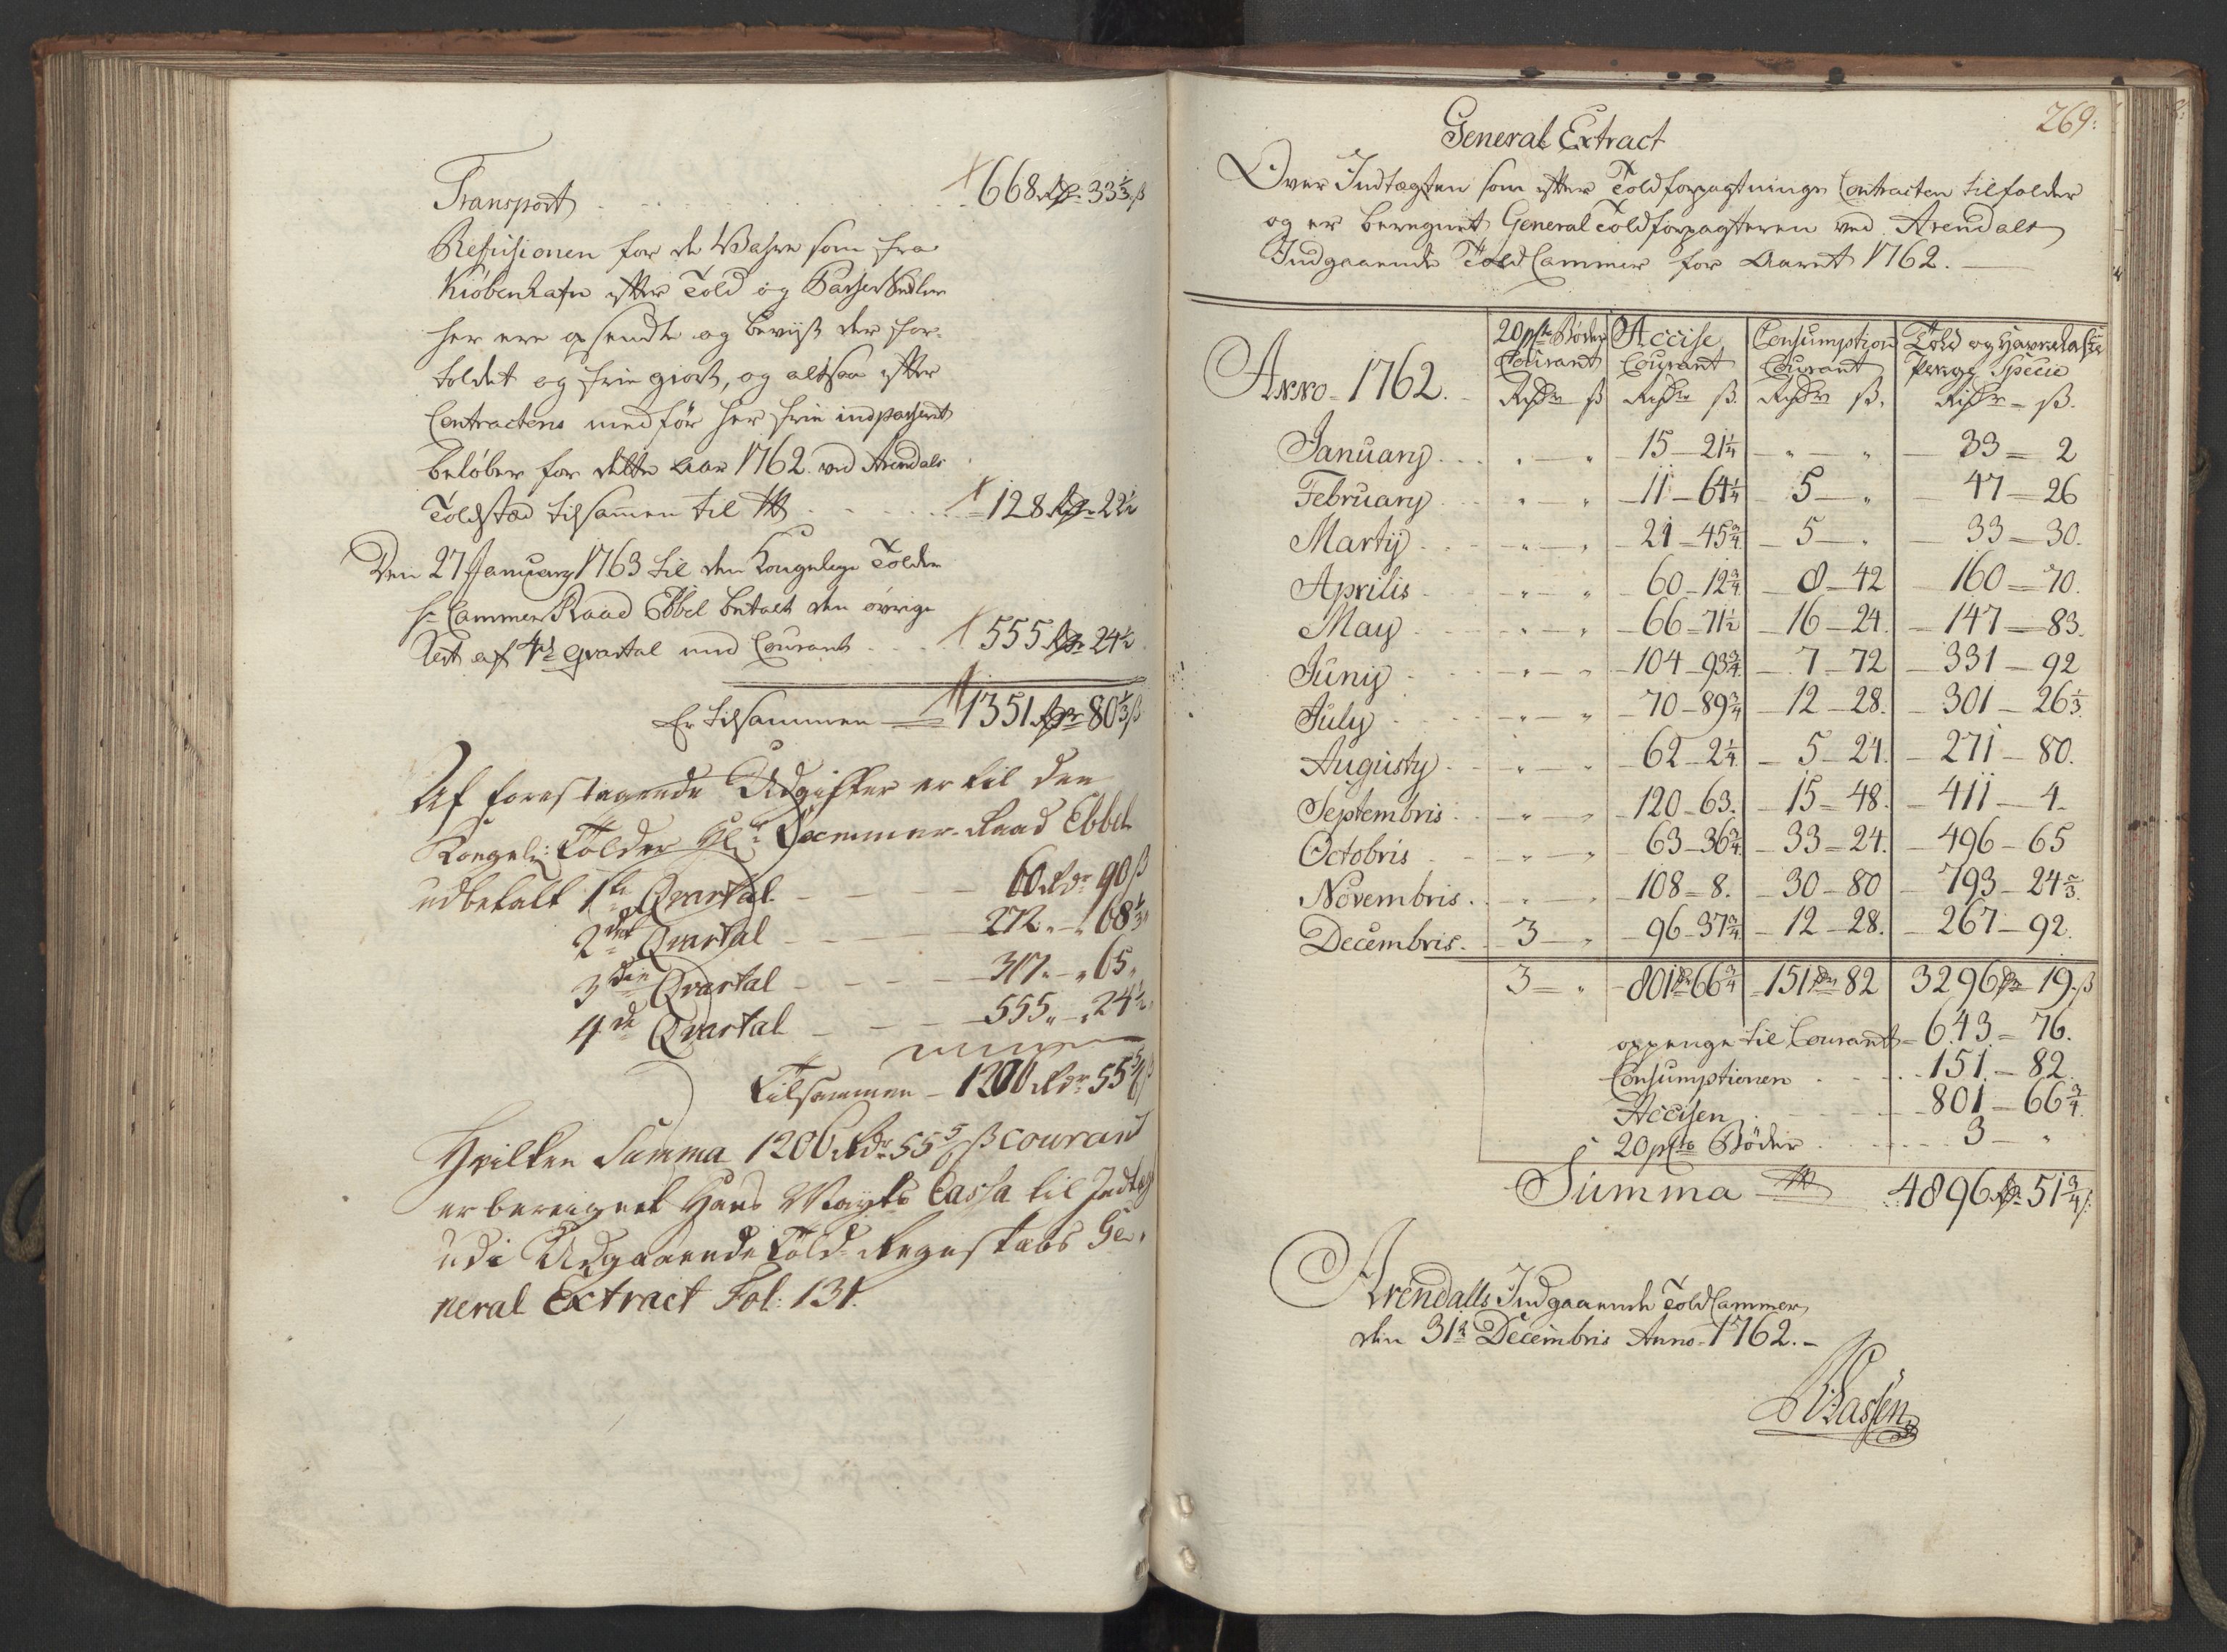 Transport . . . . 668 Rdr 33⅓ ß
Refusionen for de Wahre som fra
Kiøbenhafn efter Told og Passer Sedler
her ere opsendte og beviist der for-
toldet og frie giort, og altsaa efter
Contractens medfør her frie indpasseret
beløber for dette Aar 1762 ved Arendals
Toldsted tilsammen til . . . . 128 Rdr 22½
Den 27 January 1763 til den Kongelige Tolder
Hr Cammer Raad Ebbel betalt den øvrige
Rest af 4de Qvartal med Courant . . . 555 Rdr 24½
Er tilsammen — 1351 Rdr 80⅓ ß
Af forestaaende Udgifter er til den
Kongel: Tolder Hr Cammer-Raad Ebbel
udbetalt 1te Qvartal — — — 60 Rdr 90 ß
2det Qvartal — — — 272 „ — „ 68⅓ „
3die Qvartal — — — 317 „ — „ 65 „
4de Qvartal — — — 555 „ — „ 24½ „
Tilsammen — 1206 Rdr 55⅚ ß
Hvilken Summa 1206 Rdr 55⅚ ß courant
er beregnet Hans Mayts Cassa til Indtægt
udi Udgaaende Told-Regnskabs Ge-
neral Extract Fol: 131.
269:
General Extract
Over Indtægten som efter Toldforpagtnings Contracten tilfalder
og er beregnet General Toldforpagteren ved Arendals
Indgaaende Told Cammer for Aaret 1762. —
Anno 1762. | 20 pcto Bøder Courant Rixdr ß | Accise Courant Rixdr ß | Consumption Courant Rixdr ß. | Told og Havnelaste Penge Specie Rixdr — ß.
January . . . „ — „ 15 — 21¼ „ — „ 33 — 2
February . . „ — „ 11 — 64¼ 5 — „ 47 — 26
Martij . . „ — „ 21 — 45¾ 5 — „ 33 — 30.
Aprilis . . „ — „ 60 — 12¾ 8 — 42 160 — 70.
May . . „ — „ 66 — 71½ 16 — 24. 147 — 83.
Junij . . „ — „ 104 — 93¾ 7 — 72 331 — 92
July . . „ — „ 70 — 89¾ 12 — 28. 301 — 26⅓.
Augusty . . „ — „ 62 — 2¼ 5 — 24. 271 — 80.
Septembris . . „ — „ 120 — 63. 15 — 48. 411 — 4.
Octobris . . „ — „ 63 — 36¾ 33 — 24. 496 — 65
Novembris . . „ — „ 108 — 8. 30 — 80 793 — 24⅔.
Decembris . 3 — „ 96 — 37¾ 12 — 28. 267 — 92.
3 — „ 801 Rdr 66¾ 151 Rdr 82 3296 Rdr 19 ß
oppenge til Courant — 643 — 76.
Consumptionen . . . 151 — 82.
Accisen . . . 801 — 66¾.
20 pcto Bøder . . . 3 — „
Summa 4896 Rdr 51¾ ß.
Arendalls Indgaaende Told Cammer
den 31te Decembris Anno 1762. —